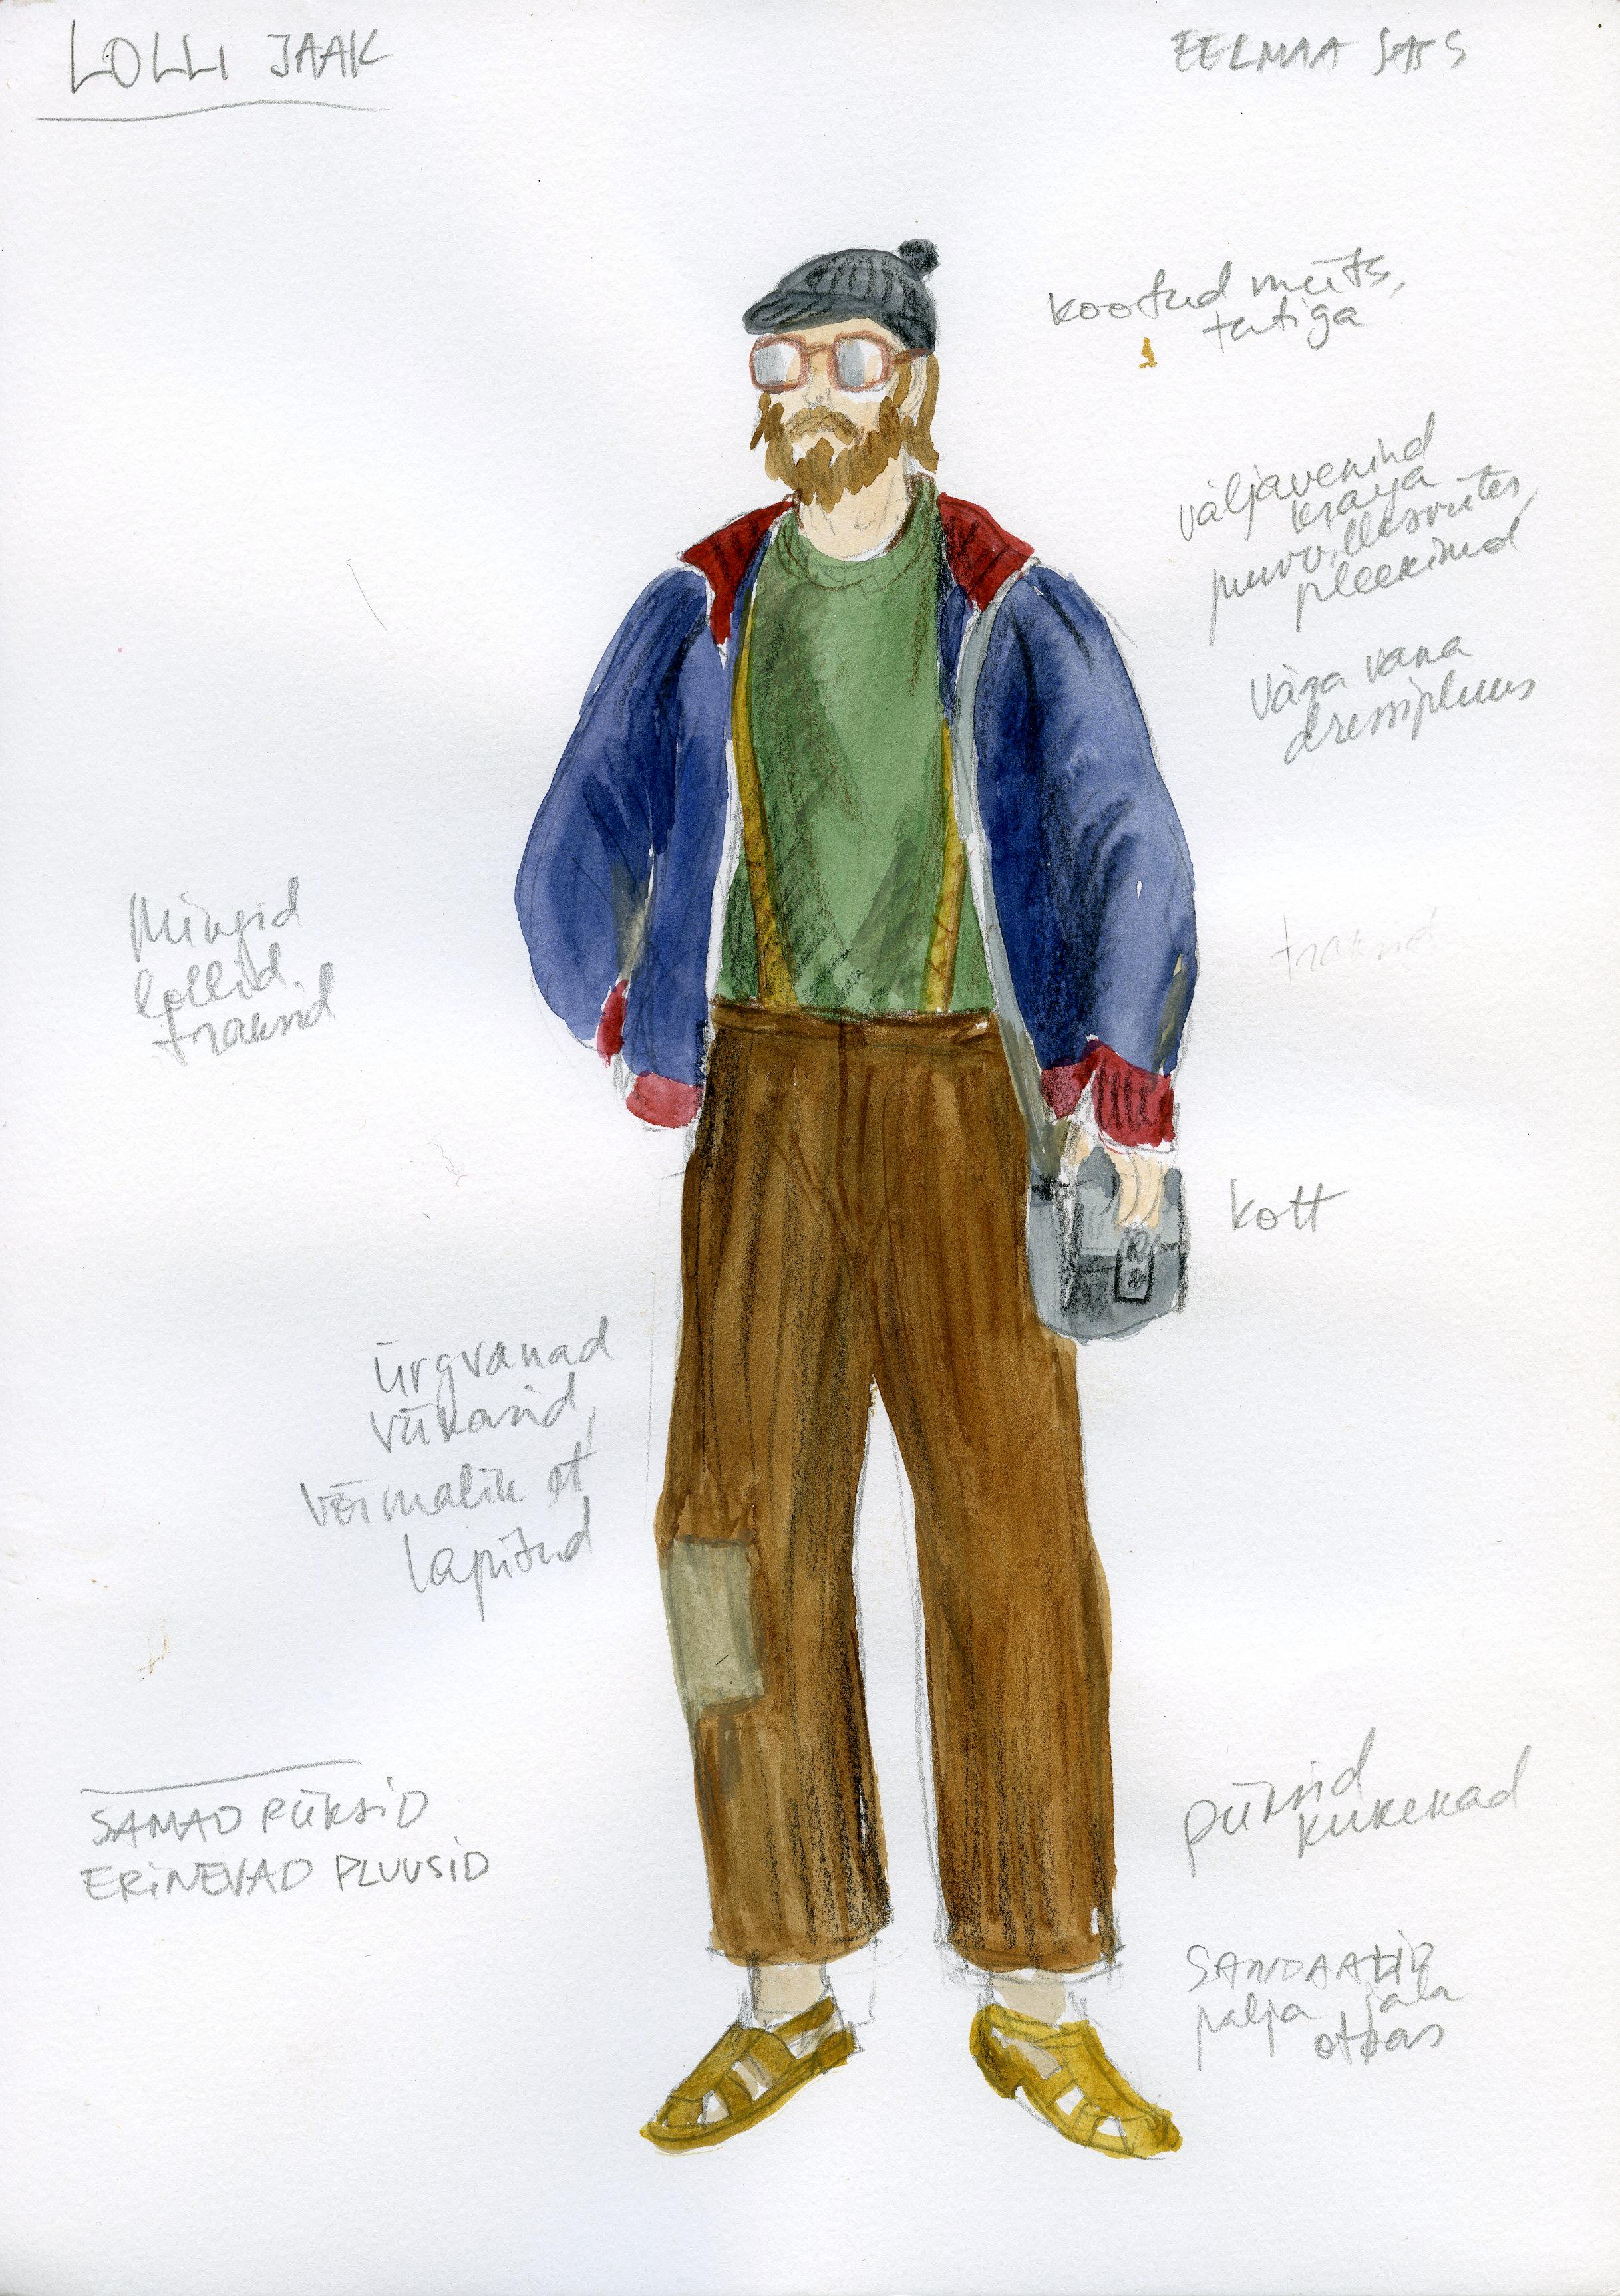 LOLLI JAAK
EELMAA SASS
kootud müts,
tutiga
väljavenind
kraega
puuvillesviiter,
pleekinud
väga vana
dressipluus
Mingid
lollid
traksid
traksid
kott
ürgvanad
viikarid,
võimalik et
lapitud
SAMAD PÜKSID
ERINEVAD PLUUSID
püksid
kukekad
SANDAALID
palja jala
otsas